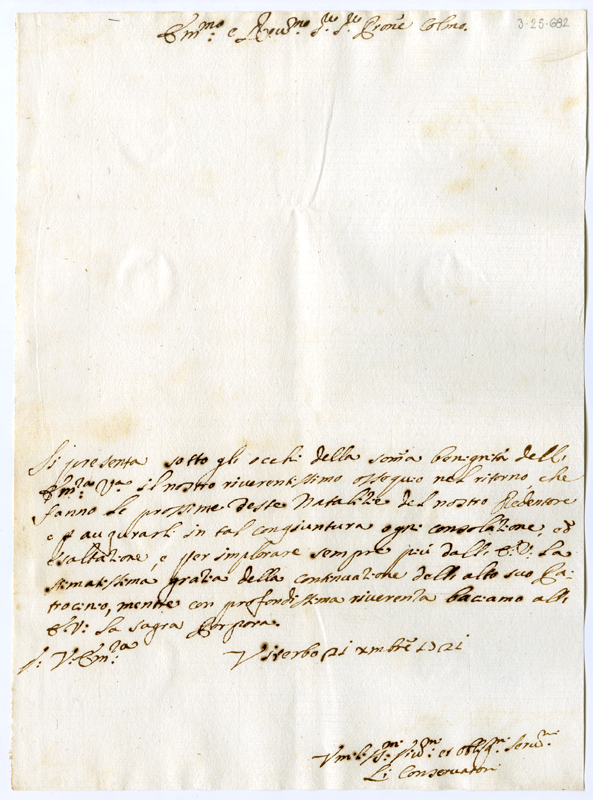 3-25-682
Em:mo e Reu:mo Sig:re Sig:re Prone Colmo.
Si presenta sotto gli occhi della soma benignità dell:
Em:za Va il nostro riverentissimo ossequio nel ritorno che
fanno le prossime Feste Natalitie del nostro Redentore
e p augurarli in tal congiuntura ogni consolatione, et
esaltatione, e per implorare sempre più dall: E:V: la
stimatissima gratia della continuatione dell: alto suo Pa-
trocinio, mentre con profondissima riverenza baciamo all:
E:V: la sagra Porpora.
V: Em:za Viterbo 21 xmbre 1721
Vm:li:mi et Obl:mi Seru:ri
Li Conservatori